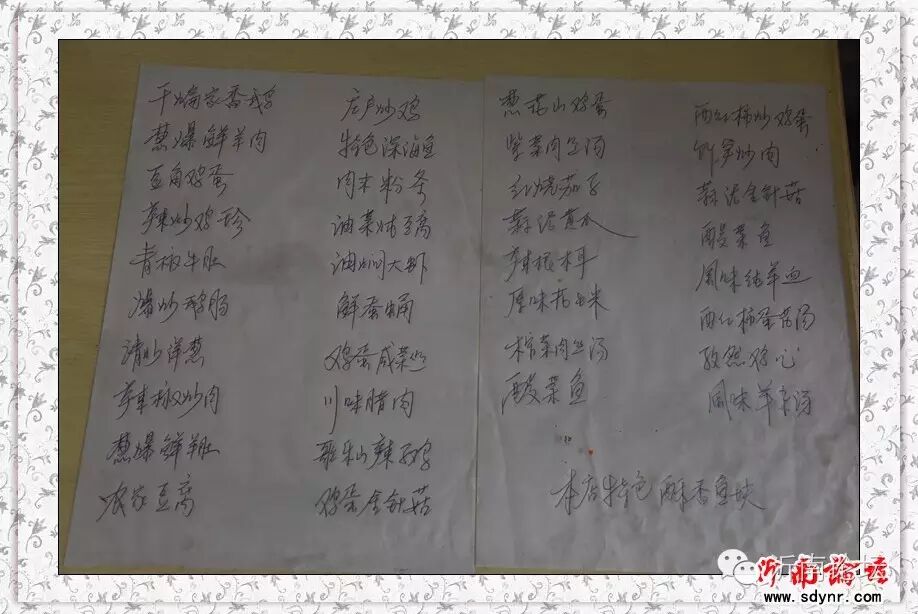 干煸家香鸡
葱爆鲜羊肉
豆角鸡蛋
辣炒鸡珍
青椒牛肚
爆炒鹅肠
清炒洋葱
辣椒炒肉
葱爆鲜羊肚
农家豆腐
庄户炒鸡
特色深海鱼
肉末粉条
油菜炖豆腐
油焖大虾
鲜蚕蛹
鸡蛋咸菜
川味腊肉
歌乐山辣子鸡
鸡蛋金针菇
葱花山鸡蛋
紫菜肉丝汤
红烧茄子
蒜泥黄瓜
辣根木耳
厚味花生米
榨菜肉丝汤
酸菜鱼
西红柿炒鸡蛋
竹笋炒肉
蒜泥金针菇
酸菜鱼
风味炖羊血
西红柿蛋花汤
孜然鸡心
风味羊杂汤
本店特色 酥香鱼块
沂南论坛
www.sdynr.com